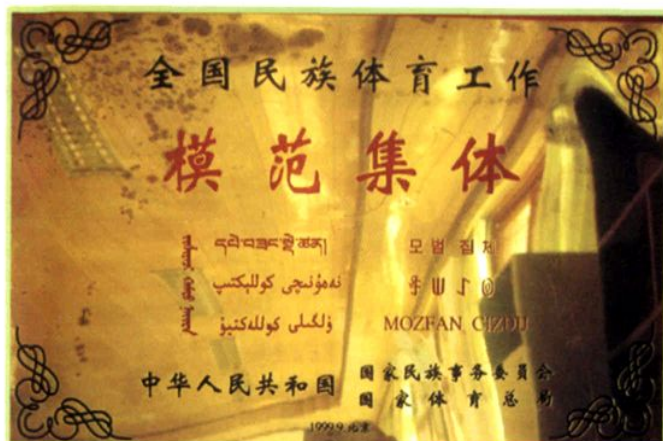 全国民族体育工作
模范集体
དཔེ་བཟང་སྡེ་ཚན།
모범 집체
نەمۇنىچى كوللېكتىپ
ۇلگىلى كوللەكتيۆ
MOZFAN CIZDIJ
中华人民共和国
国家民族事务委员会
国家体育总局
1999.9 北京